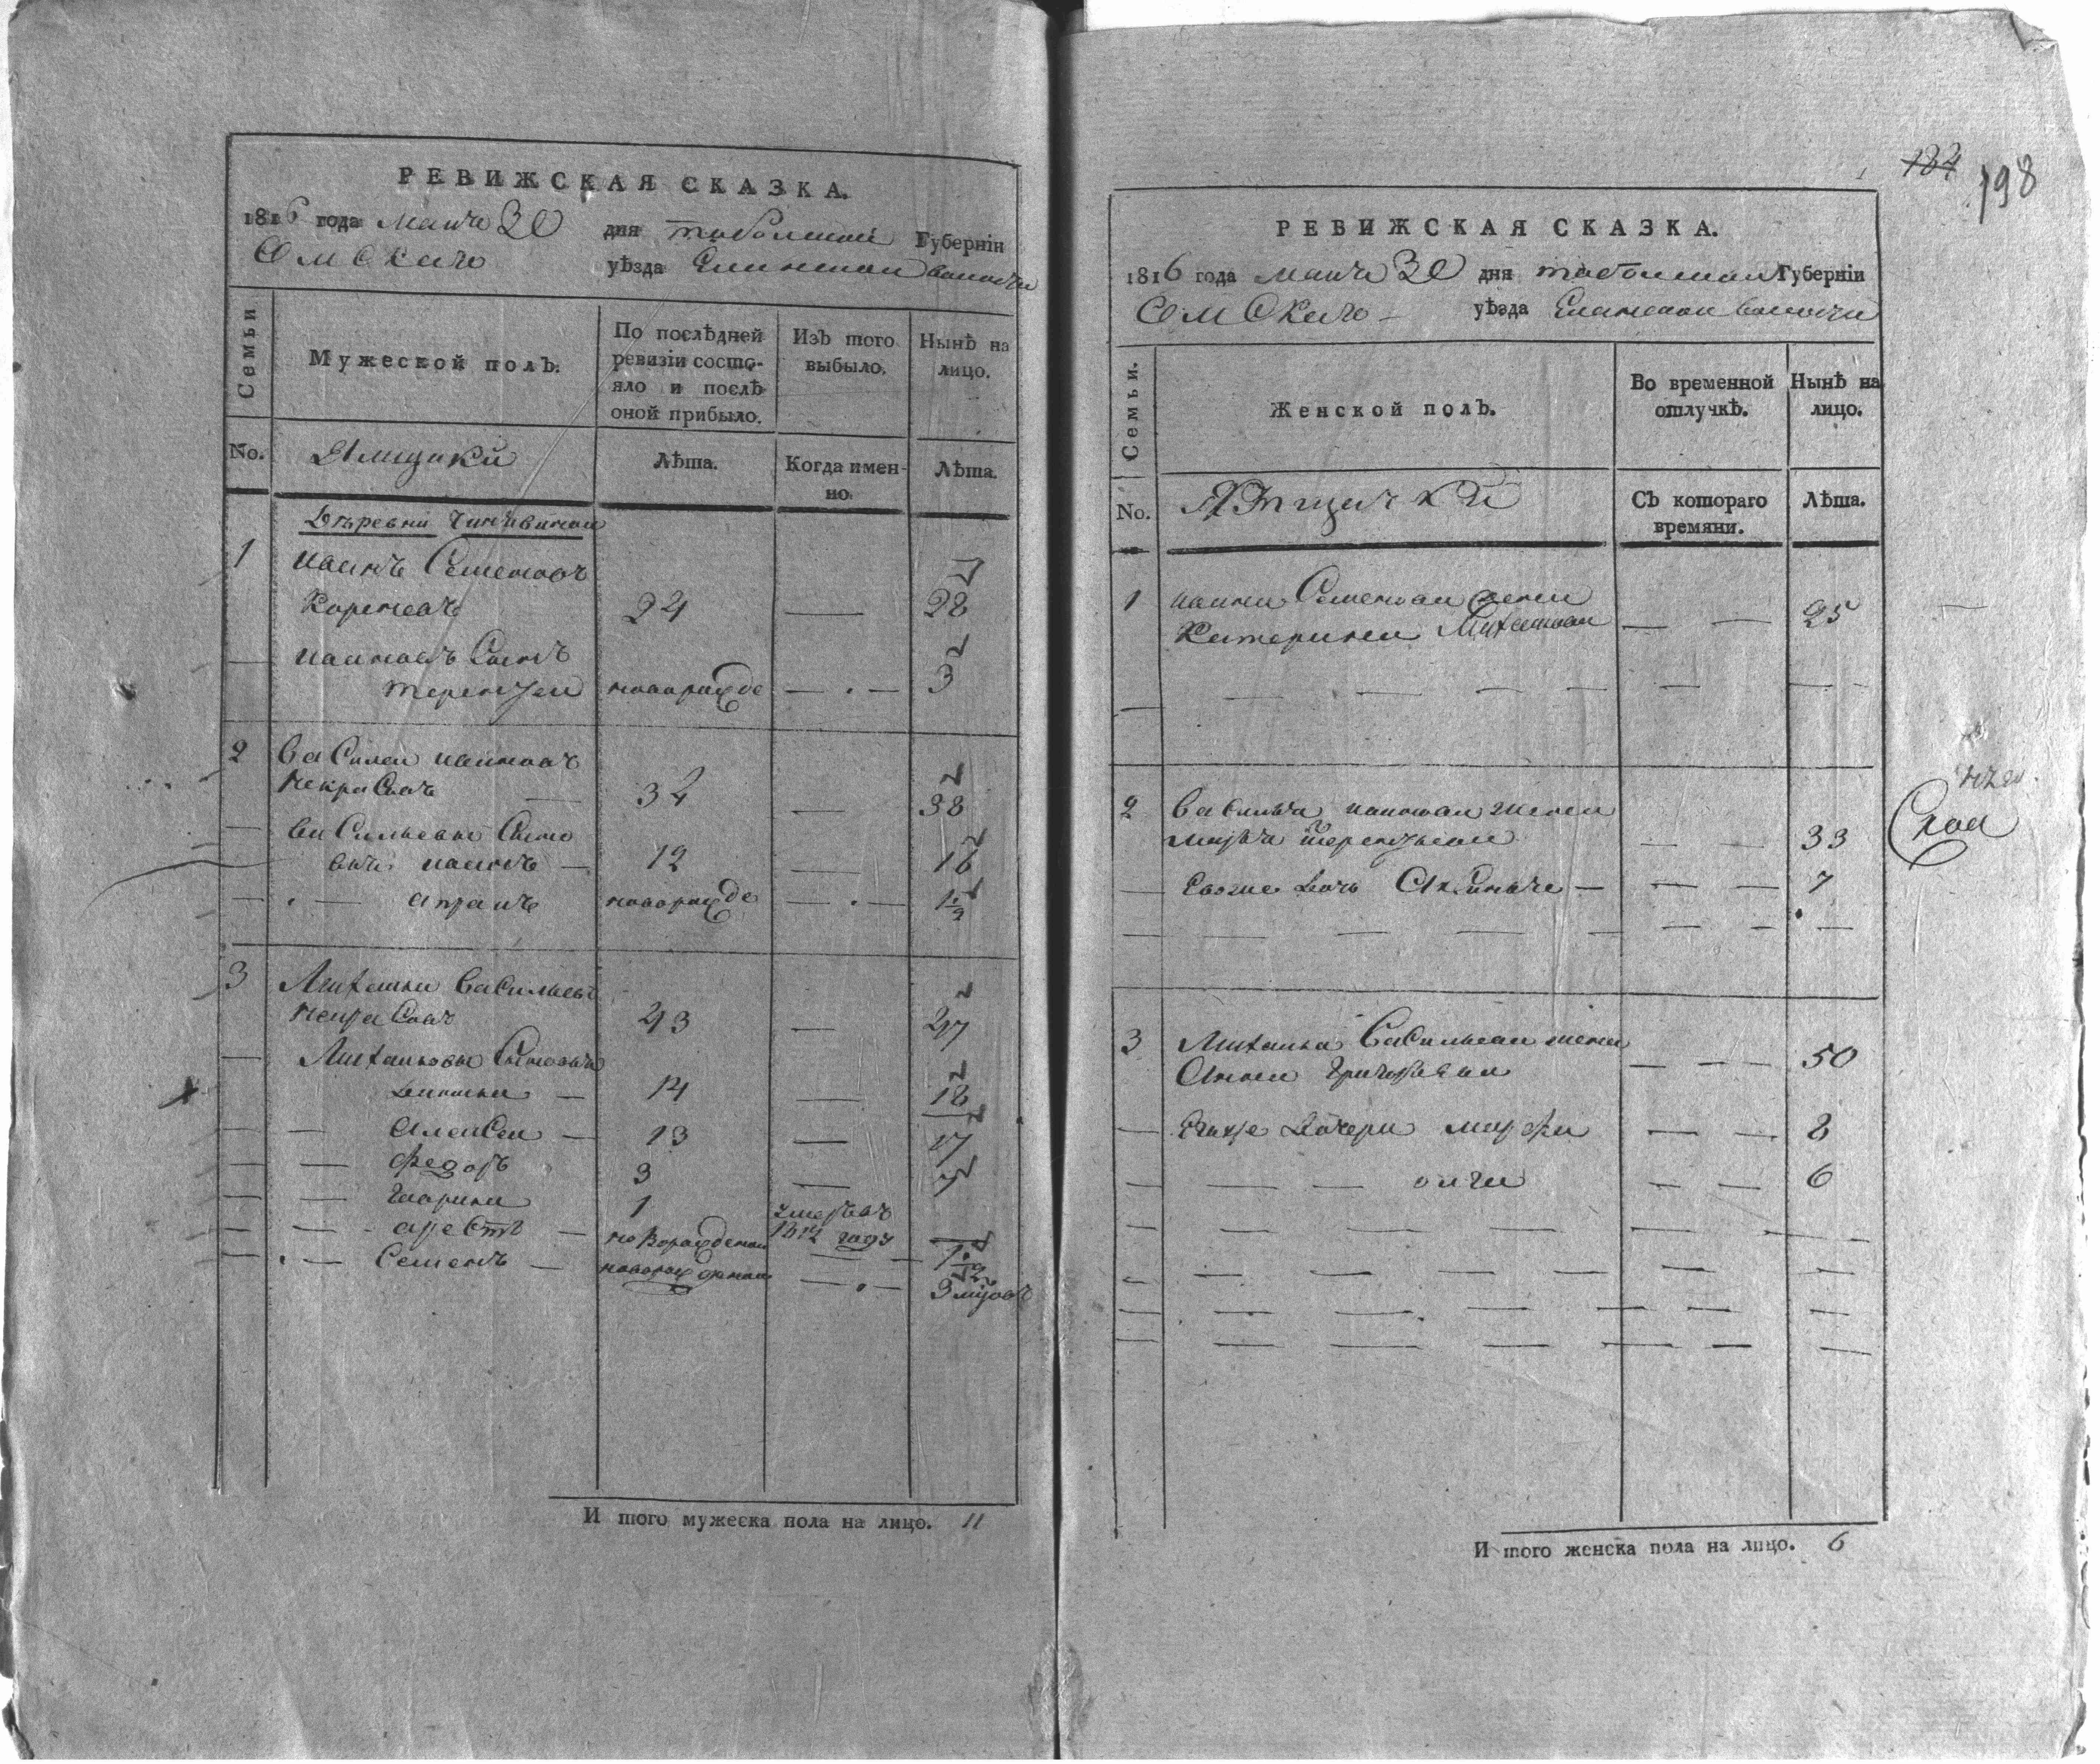 РЕВИЖСКАЯ СКАЗКА.
1816 года маия 30 дня тобольской Губерніи
Омскаго уѣзда Еланской волости
Семьи
Мужеской полъ.
По послѣдней ревизіи состояло и послѣ оной прибыло.
Изъ того выбыло.
Нынѣ на лицо.
No.
Ямщики
Лѣта.
Когда именно.
Лѣта.
Деревни
1 иванъ Семеновъ
24 28
ивановъ Сынъ
терентеи новорожде — . — 3
2 василеи ивановъ
некрасовъ 34 — 38
васильевы Сыно
вья иванъ — 12 — 16
новорожде — . — 1 1/2
3 Михаила васильевъ
некрасовъ 43 — 47
Михаиловы Сыновья
14 — 18
алексеи — 13 — 17
федоръ 3 — 7
гаврила 1 умеръ въ 1812 году —
новорожденои — 1 1/2
Семенъ — новорожденои — . — 3 мцовъ
И того мужеска пола на лицо. 11
184 198
РЕВИЖСКАЯ СКАЗКА.
1816 года маия 30 дня тобольской Губерніи
Омскаго — уѣзда Еланской волости
Семьи.
Женской полъ.
Во временной отлучкѣ.
Нынѣ на лицо.
No.
Ямщички
Съ котораго времяни.
Лѣта.
1 ивана Семенова жена
Катерина Михаилова — — 25
2 василья иванова жена
марья терентьева — — 33
Евоже дочь Аксинья — — — 7
3 Михаила васильева жена
Анна Григорьева — — — 50
Ихже дочери марфа — — 8
— — — олга — — 6
И того женска пола на лицо. 6